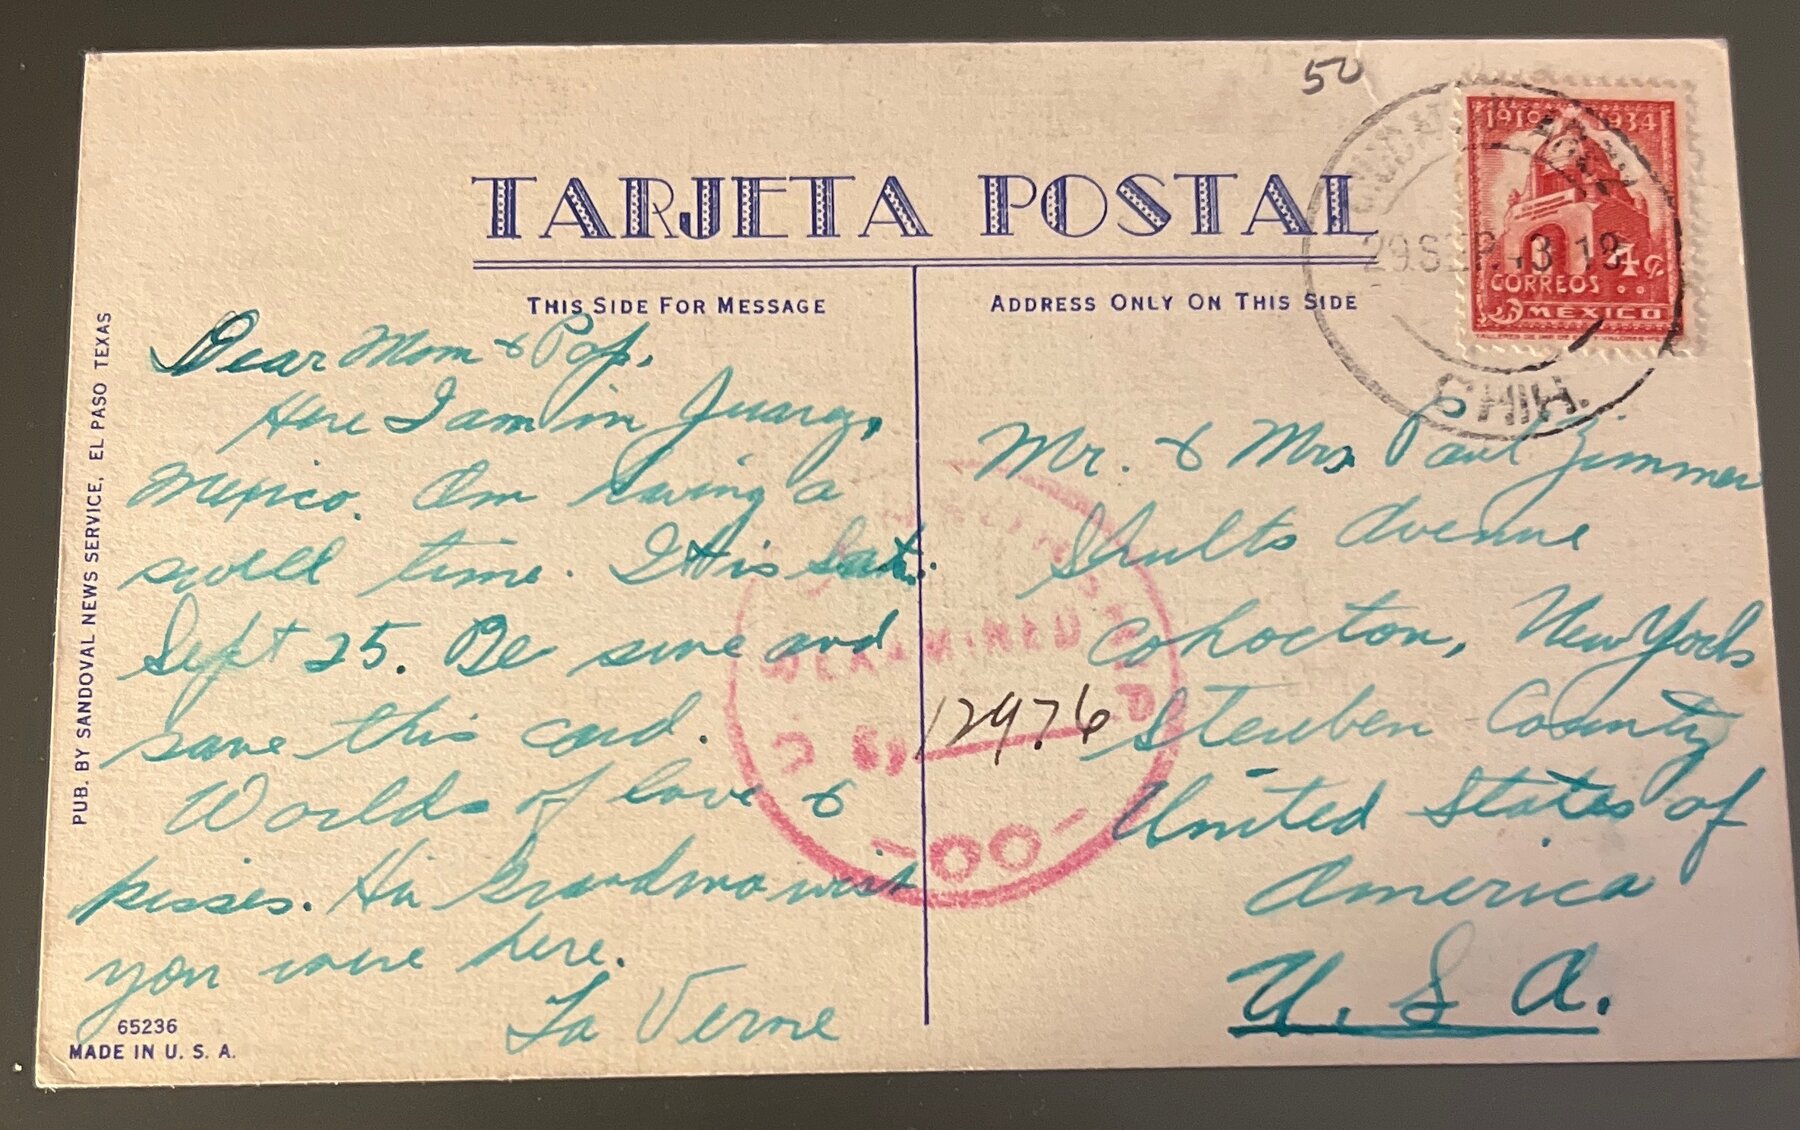 50
1910 1934
29 SEP. 43 18
4¢
CORREOS
MEXICO
CHIH.
TARJETA POSTAL
THIS SIDE FOR MESSAGE
ADDRESS ONLY ON THIS SIDE
PUB. BY SANDOVAL NEWS SERVICE, EL PASO TEXAS
Dear Mom & Pop,
Here I am in Juarez,
Mexico. Am having a
swell time. It is Sat.
Sept 25. Be sure and
save this card.
Worlds of love &
kisses. Hi Grandma wish
you were here.
La Verne
Mr. & Mrs. Paul Zimmer
Shults Avenue
Cohocton, New York
Steuben County
United States of
America
U.S.A.
EXAMINED
12976
65236
MADE IN U. S. A.